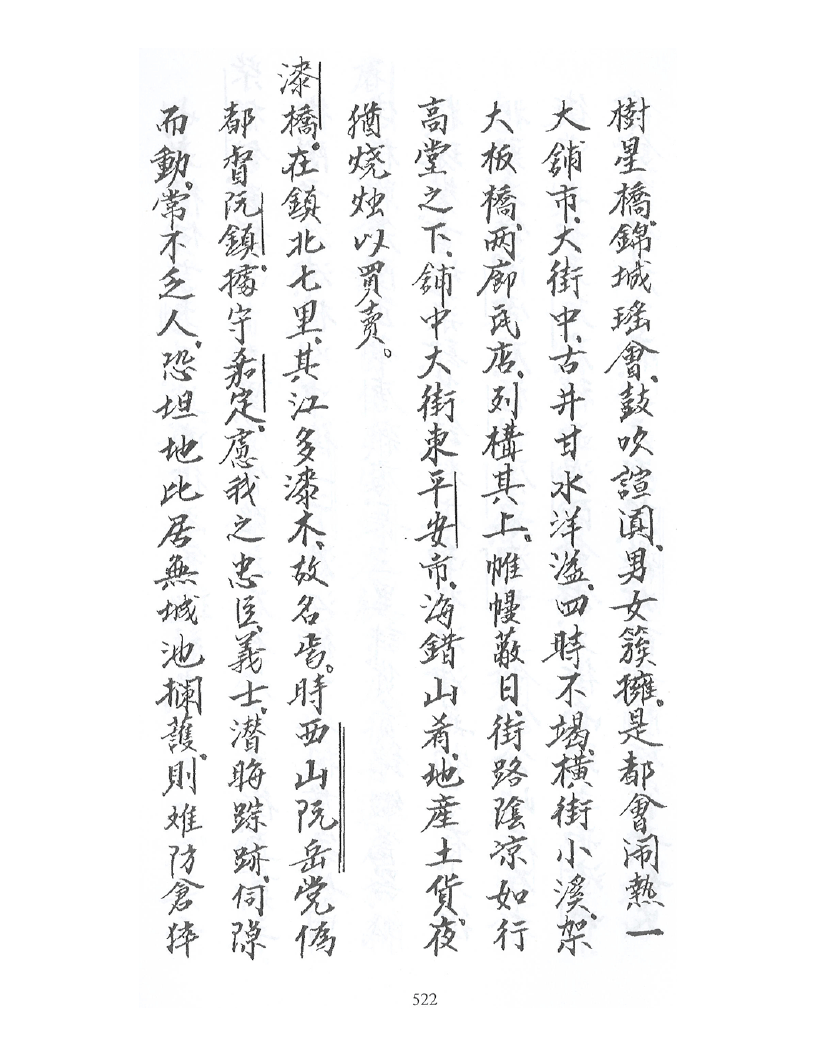 樹星橋、錦城瑤會、鼓吹諠闐、男女簇擁。是都會閙熱一
大舖市、大街中、古井甘水洋溢、四時不竭、橫街小溪、架
大板橋、两廊民店、列構其上、帷幔蔽日、街路陰凉如行
高堂之下、舖中大街東平安帘、海錯山肴、地產土貨、夜
猶燒烛以買賣。
漆橋。在鎮北七里、其江多漆木、故名焉。時西山阮岳党僞
都督阮鎮、據守嘉定、慮我之忠臣、義士、潜晦踪跡、伺隙
而動、常不乏人、恐坦地比居無城池摑護、則难防倉猝